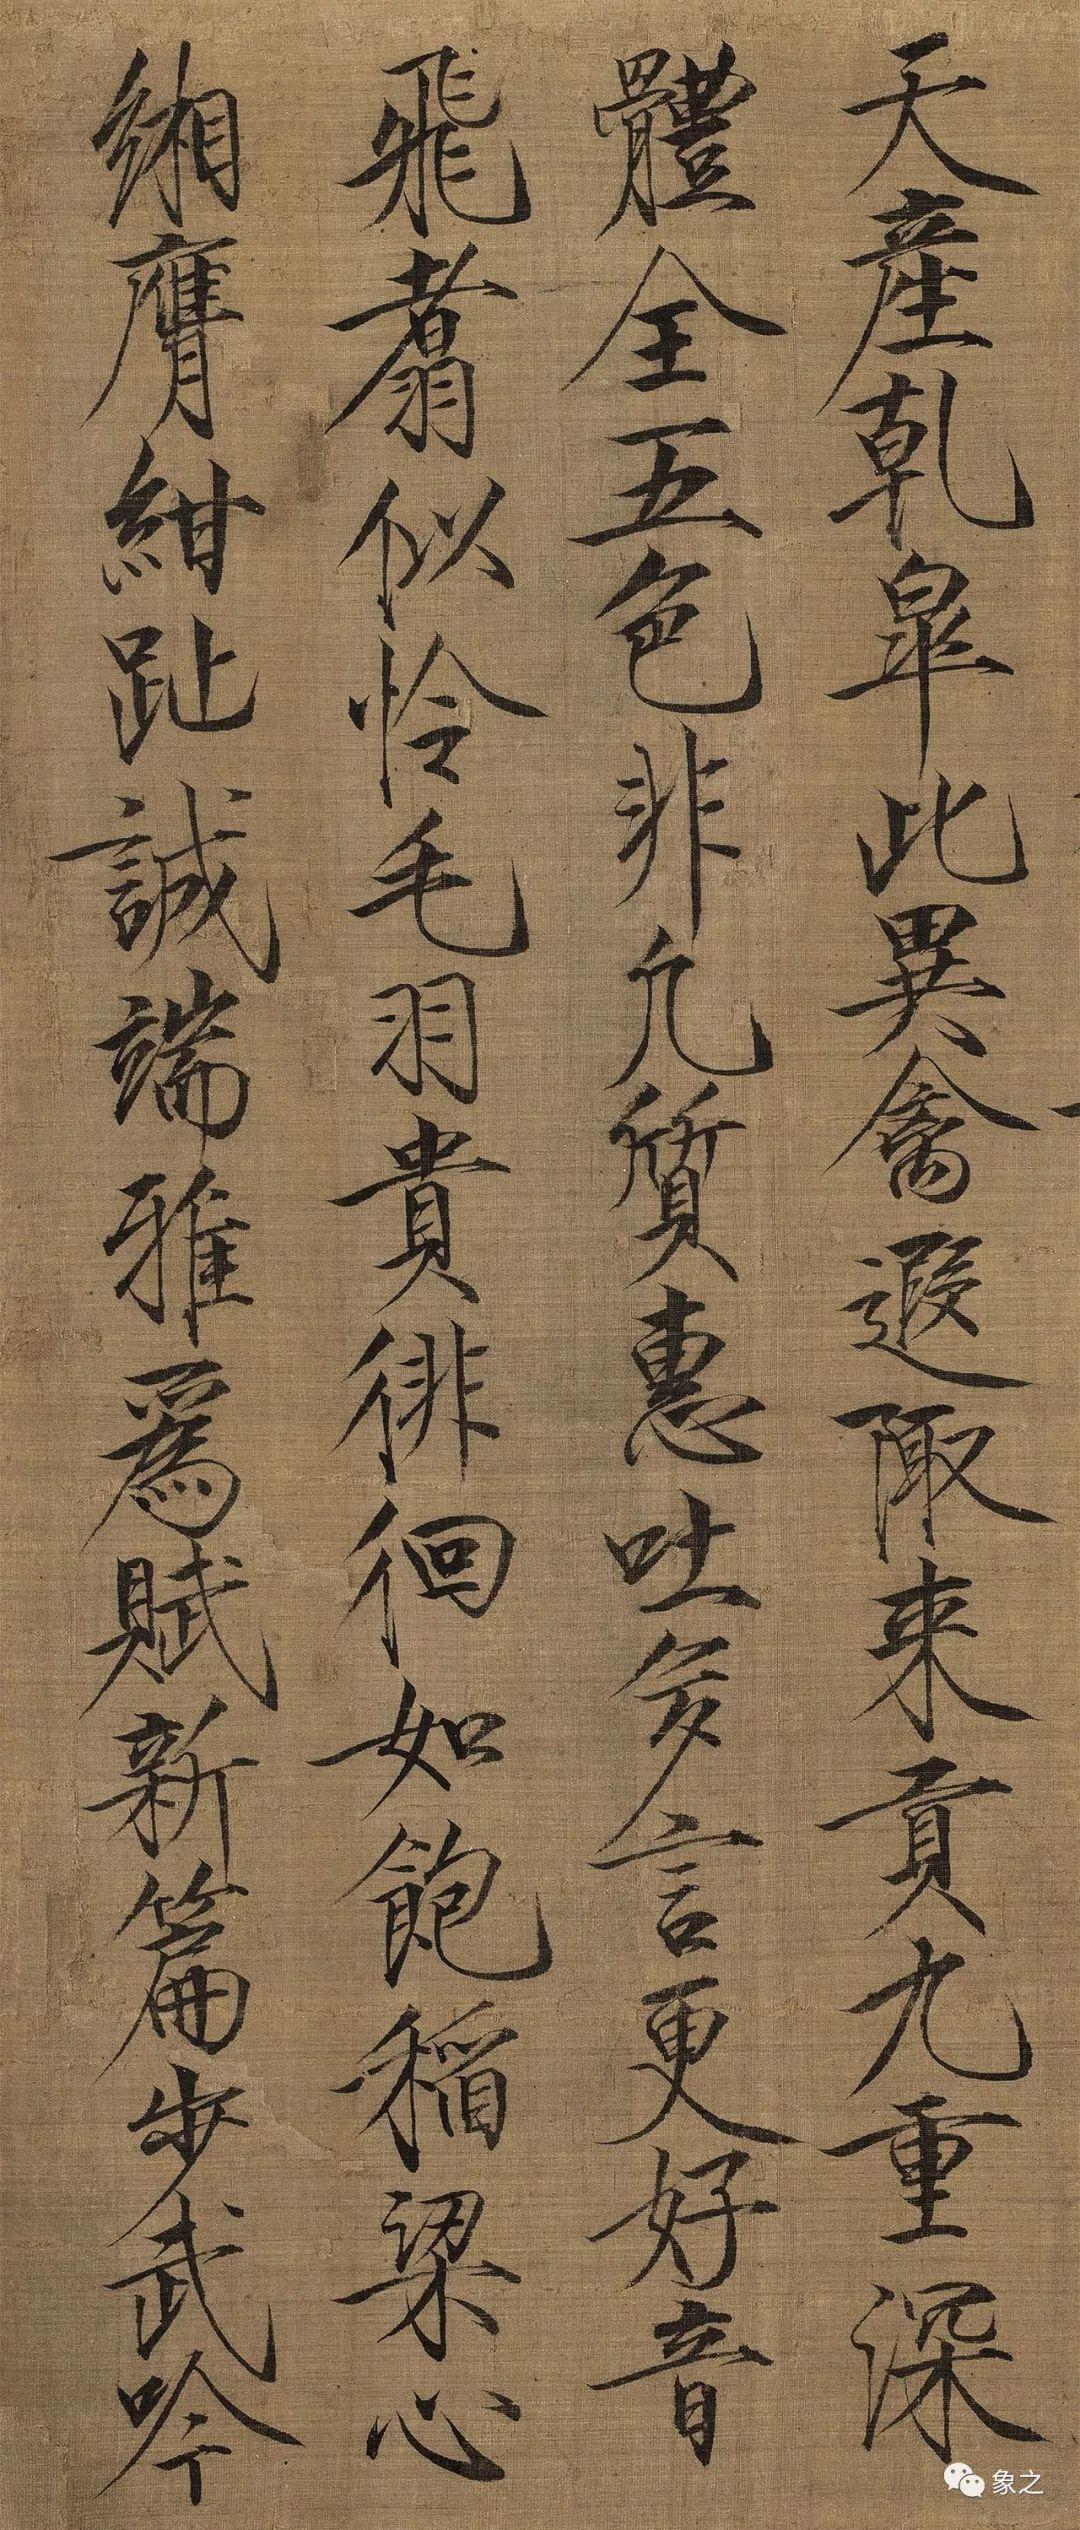 天産乹皐此異禽遐陬来貢九重深
體全五色非凢質惠吐多言更好音
飛翥似怜毛羽貴徘徊如飽稲粱心
緗膺紺趾誠端雅爲賦新篇步武吟
象之